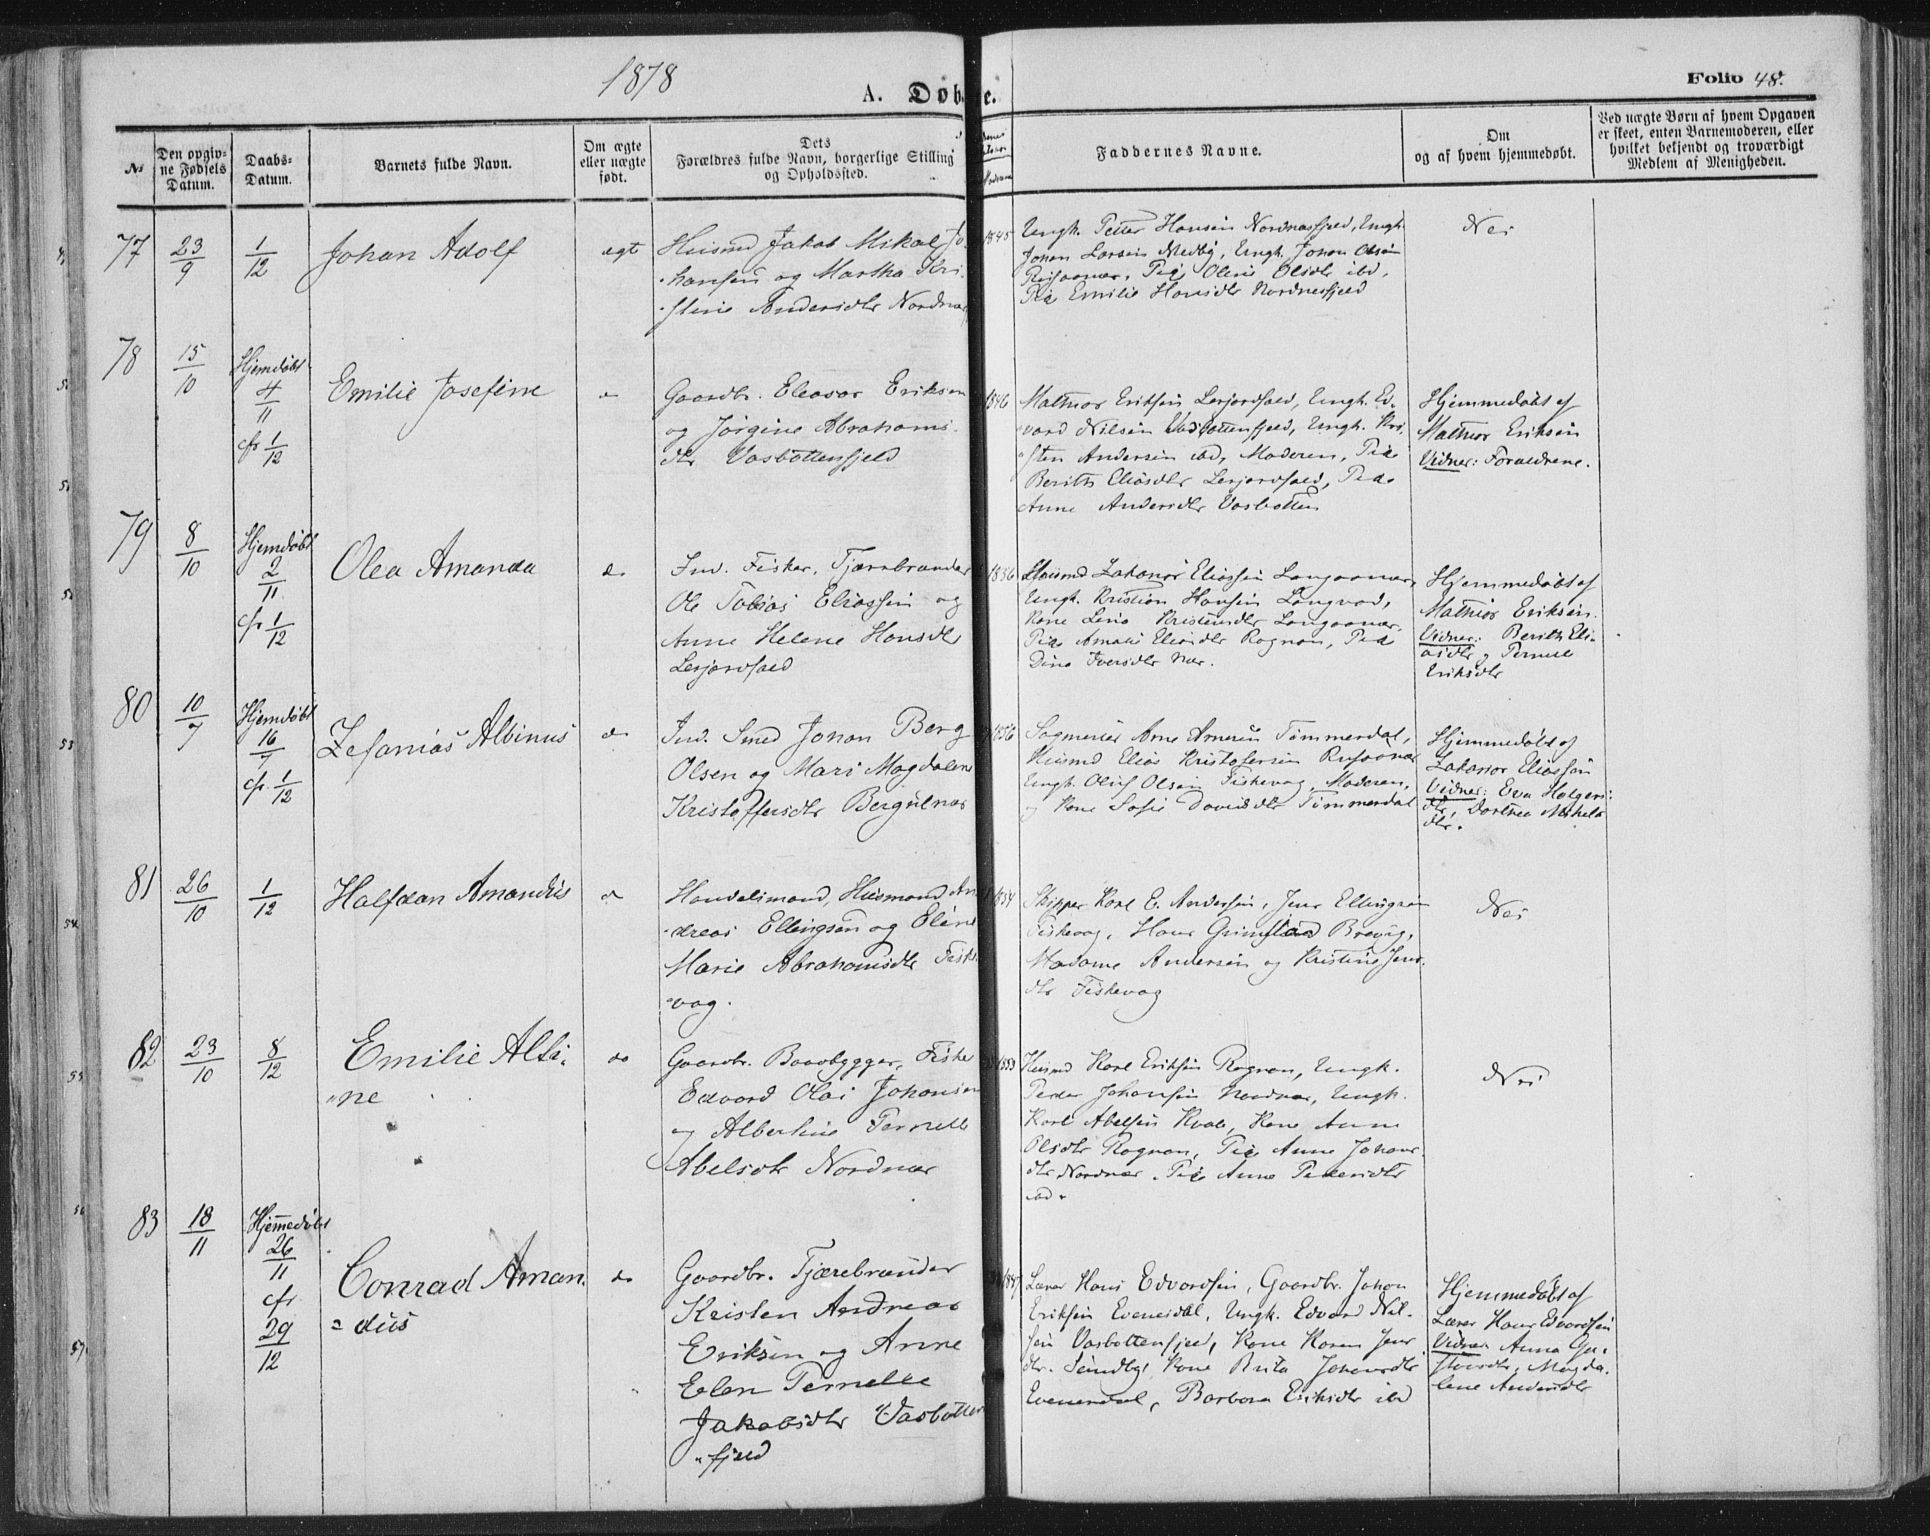 1878
A. Døb e.
Folio 48.
No
Den opgiv-
ne Fødsels
Datum.
Daabs-
Datum.
Barnets fulde Navn.
Om ægte
eller uægte
født.
Dets
Forældres fulde Navn, borgerlige Stilling
og Opholdssted.
Faddernes Navne.
Om
og af hvem hjemmedøbt.
Ved uægte Børn af hvem Opgaven
er skeet, enten Barnemoderen, eller
hvilket bekjendt og troværdigt
Medlem af Menigheden.
77
23/9
1/12
Johan Adolf
ægt
Husmd Jakob Mikal Jo-
hansen og Martha Kri-
stine Andersdtr Nordnæs
1845
Ungk. Petter Hansen Nordnæsfjeld, Ungk.
Johan Larsen Medby, Ungk. Johan Olsen
Pige Oline Olsdtr ibd,
Pige Emilie Hansdtr Nordnesfjeld
Nei
78
15/10
Hjemdøbt
4/11
cfr 1/12
Emilie Josefine
Gaardbr. Eleasar Eriksen
og Jørgine Abrahams-
dtr Vasbottenfjeld
1846
Mathias Eriksen Lerjordfald, Ungk. Ed-
vard Nilsen Vasbottenfjeld, Ungk. Kri-
sten Andersen ibd, Moderen, Pige
Berith Eliasdtr Lerjordfald, Pige
Anne Andersdtr Vasbotten
Hjemmedøbt af
Mathias Eriksen
Vidner: Forældrene.
79
8/10
Hjemdøbt
2/11
cfr 1/12
Olea Amanda
do
Ind. Fisker, Tjærebrænder
Ole Tobias Eliassen og
Anne Helene Hansdtr
Lerjordfald
1856
Husmd Zakarias Eliassen Langaanæs,
Ungk. Kristian Hansen Langvad,
Kone Lena Kristensdtr Langaanæs,
Pige Amalie Eliasdtr Rognan, Pige
Dina Iversdtr Næs.
Hjemmedøbt af
Mathias Eriksen.
Vidner: Berith Eli-
asdtr og Pernele
Eriksdtr
80
10/7
Hjemdøbt
16/7
cfr. 1/12
Zefanias Albinus
do
Ind. Smed Johan Berg
Olsen og Mari Magdalene
Kristoffersdtr Bergulnæs
1856
Sagmester Arne Arnesen Tømmerdal,
Husmd Elias Kristofersen
Ungk. Oluf Olsen Fiskevag, Moderen,
og Kone Sofie Davidsdtr Tømmerdal
Hjemmedøbt af
Zakarias Eliassen
Vidner: Eva Holgers-
dtr, Dorthea Mikels-
dtr.
81
26/10
1/12
Halfdan Amandus
do
Handelsmand, Husmand An-
dreas Ellingsen og Eline
Marie Abrahamsdtr Fiske-
vag.
1854
Skipper Karl E. Andersen, Jens Ellingsen
Fiskevag, Hans Grimstad Brevig,
Madame Andersen og Kristine Jens-
dtr Fiskevag
Nei
82
23/10
8/12
Emilie Albi-
ne
do
Gaardbr. Baadbygger, Fisker
Edvard Olai Johansen
og Albertine Pernelle
Abelsdtr Nordnæs
1853
Husmd Karl Eriksen Rognan, Ungk.
Peder Johansen Nordnæs, Ungk.
Karl Abelsen Hvale, Kone Anne
Olsdtr Rognan, Pige Anne Johans-
dtr Nordnæs, Pige Anne Pedersdtr
ibd.
Nei
83
18/11
Hjemmedøbt
26/11
cfr
29/12
Conrad Aman-
dus
do
Gaardbr. Tjærebrænder
Kristen Andreas
Eriksen og Anne
Elen Pernelle
Jakobsdtr Vasbotten-
fjeld
Lærer Hans Edvardsen, Gaardbr. Johan
Eriksen Evenesdal, Ungk. Edvard Nil-
sen Vasbottenfjeld, Kone Karen Jens-
dtr. Sundby, Kone Brita Johansdtr
Evenesdal, Barbara Eriksdtr ibd
Hjemmedøbt af
Lærer Hans Edvardsen
Vidner: Anna Gu-
stavsdtr, Magda-
lene Andersdtr